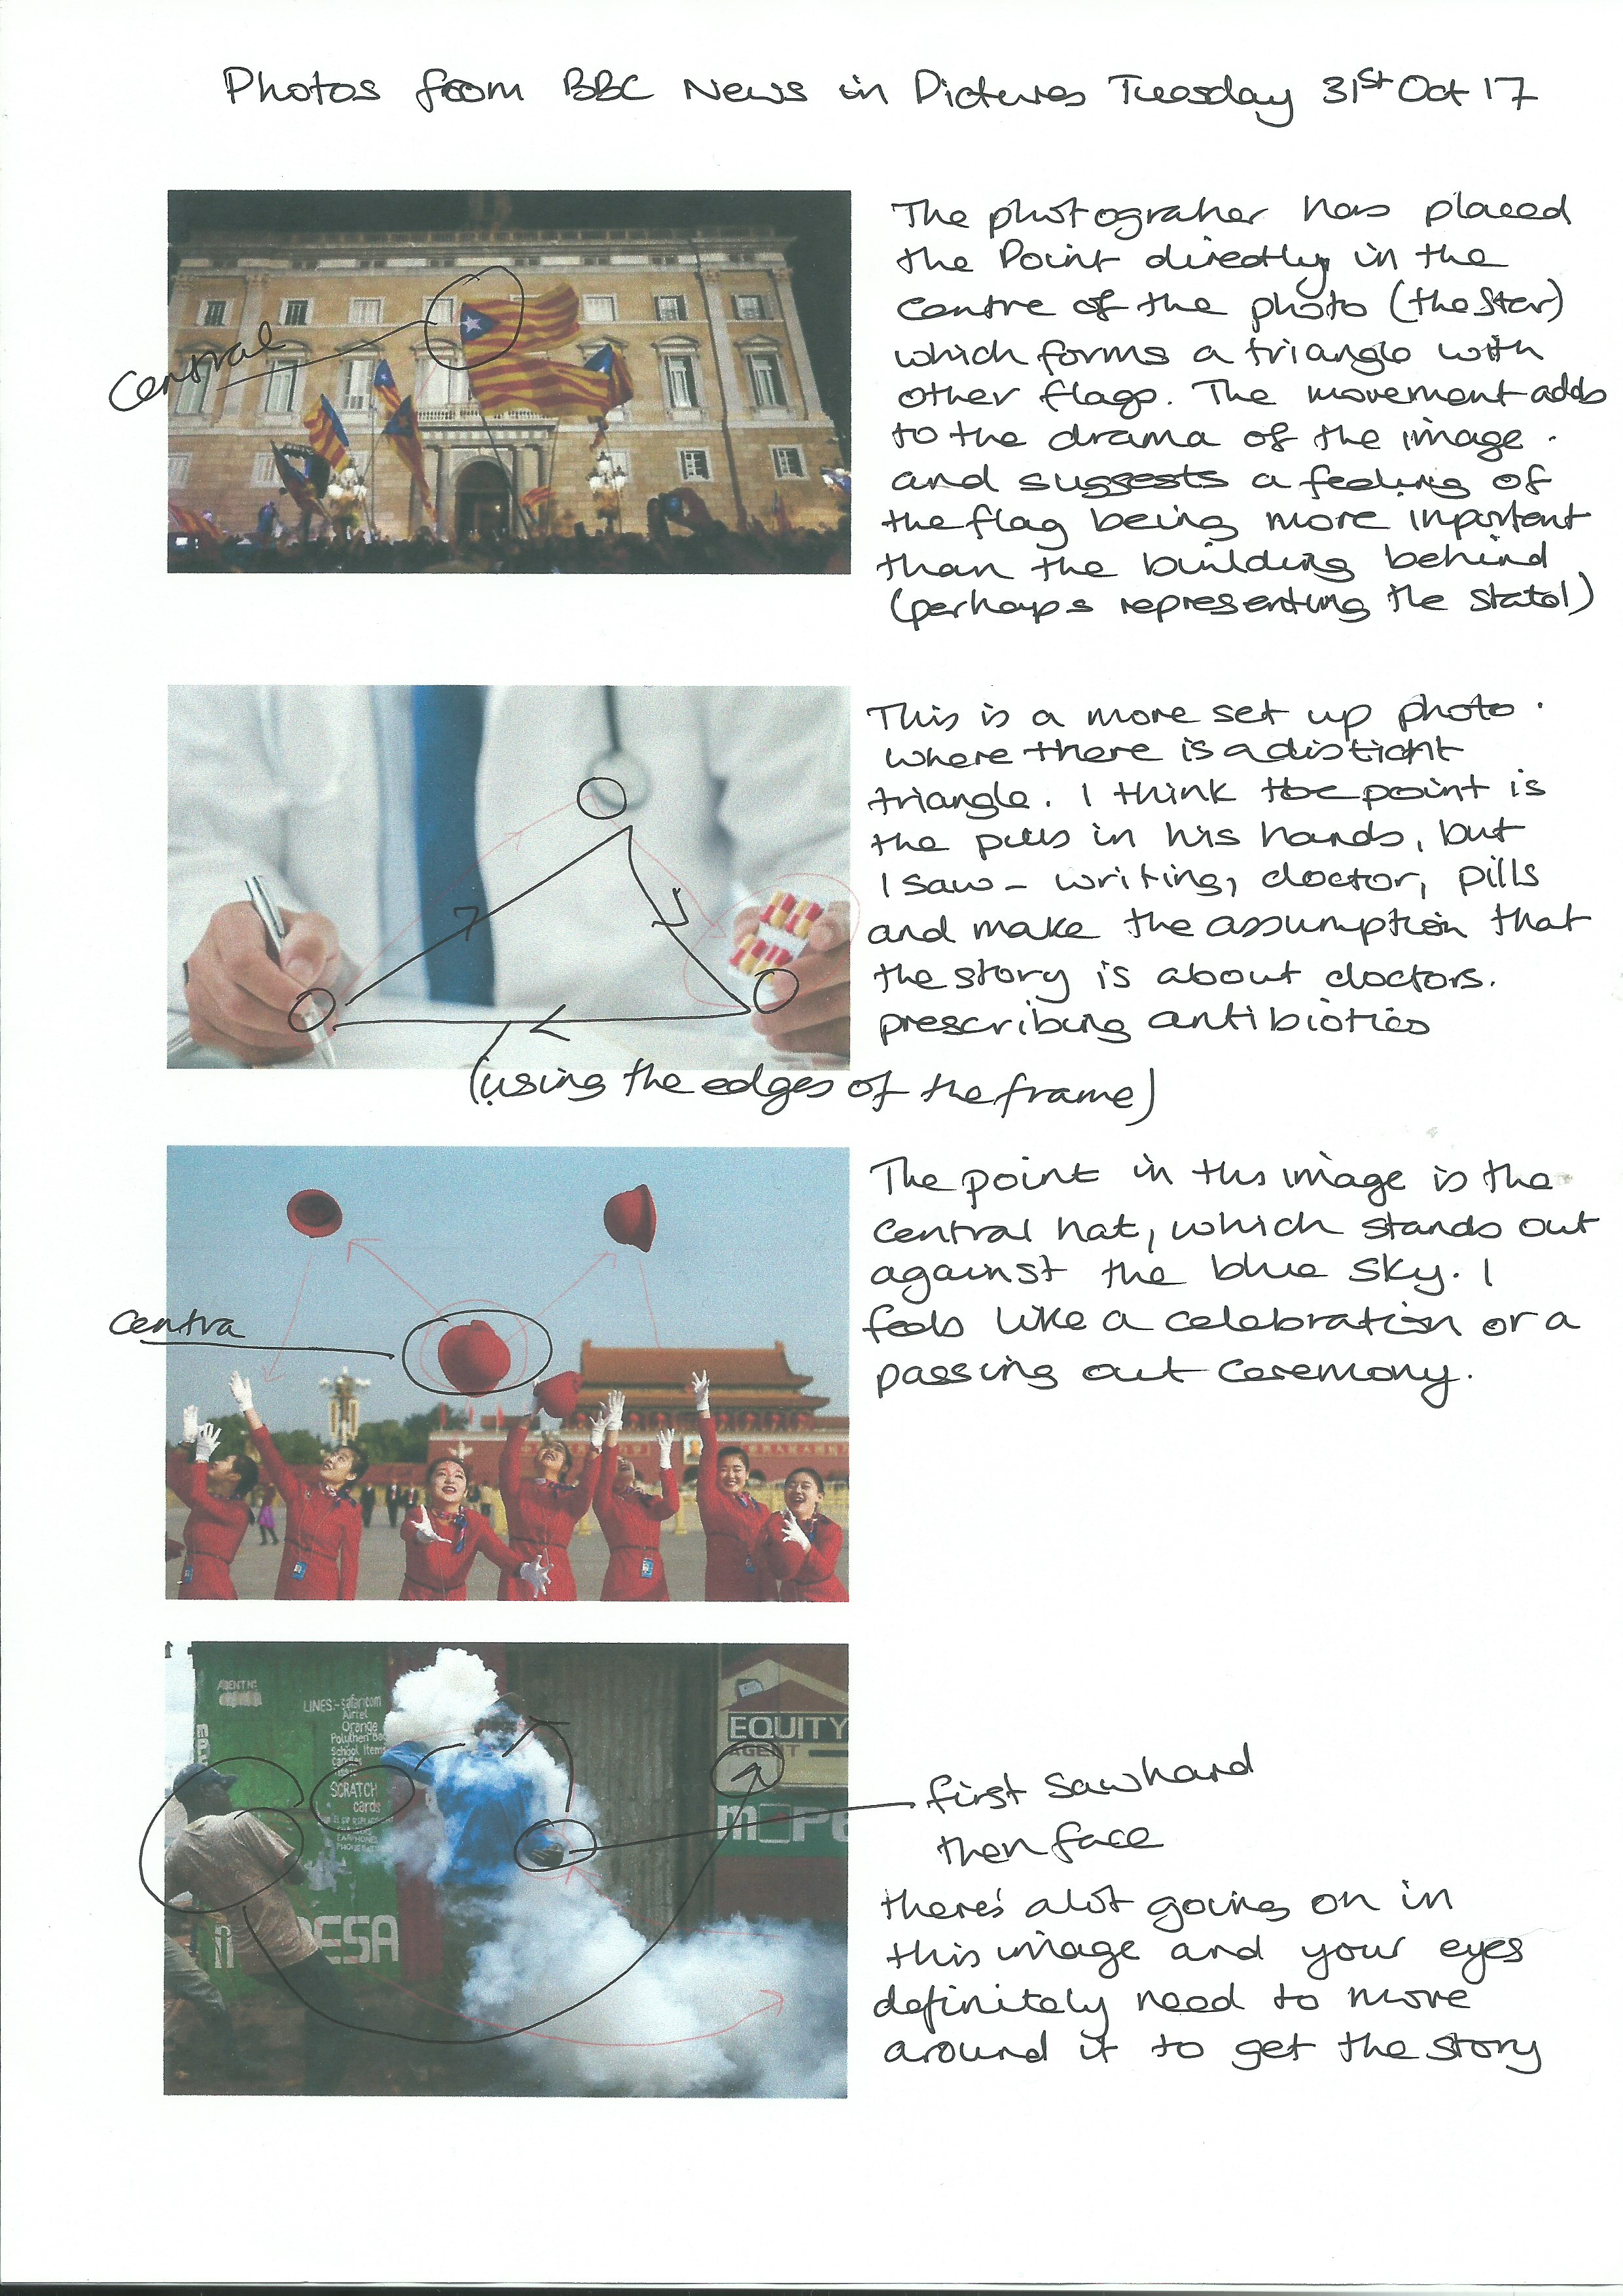 Photos from BBC News in Pictures Tuesday 31st Oct 17
The photograher has placed
the Point directly in the
centre of the photo (the Star)
which forms a triangle with
other flags. The movement adds
to the drama of the image.
and suggests a feeling of
the flag being more inportant
than the building behind
(perhaps representing the
Central
This is a more set up photo.
where there is a
triangle. I think the point is
the pills in his hands, but
I saw - writing, doctor, pills
and make the assumption that
the story is about doctors.
prescribing antibiotics
(using the edges of the frame)
The point in this image is the
central hat, which stands out
against the blue sky. I
feels like a celebration or a
passing out ceremony.
Centra
AGENT No
LINES:- safaricom
Airtel
Orange
School Items
SCRATCH
cards
ESA
EQUITY
AGENT
first saw hand
then face
there's alot going on in
this image and your eyes
definitely need to move
around it to get the story